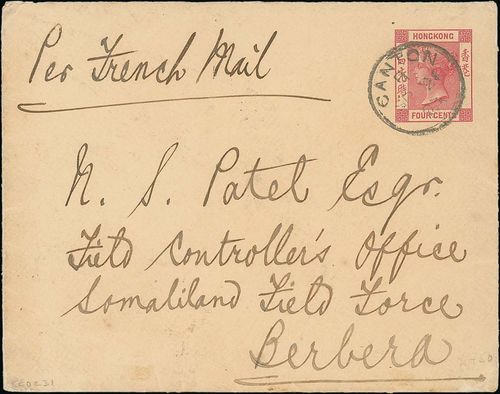 Per French Mail
HONGKONG
CANTON
FOUR CENTS
N. S. Patel Esqr.
Field Controller's Office
Somaliland Field Force
Berbera